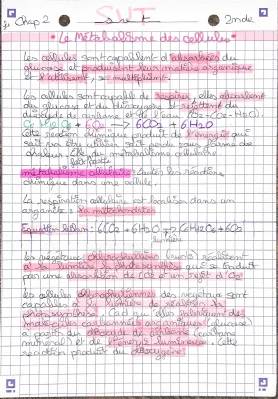 Chap 2 SVT 2nde
Le Métabolisme des cellules
Les cellules sont capable d'absorber du
glucose et produisent leur matière organique
et l'utilisent, se multiplient.
Les cellules sont capable de respirer, elles absorbent
du glucose et du dioxygène et rejettent du
dioxyde de carbone et de l'eau (O2 - CO2 - H2O).
6O2 → 6CO2 + 6H2O
Cette réaction chimique produit de l'énergie qui
soit va être utiliser soit perdu sous forme de
chaleur. Elle du métabolisme cellulaire
fait partie
métabolisme cellulaire : toutes les réactions
chimique dans une cellule.
La respiration cellulaire est dans un
organite : la mitochondrie
Equation bilan : 6CO2 + 6H2O → C6H12O6 + 6O2
lumière
Les végétaux chlorophylliens (verts) réalisent
à la lumière la photosynthèse qui se traduit
par une absorption de CO2 et un rejet d'O2
Les cellules chlorophylliennes des végétaux sont
capables à la lumière de réaliser la
photosynthèse. Càd qu'elles fabriquent des
molécules carbonées organiques (glucose)
à partir du dioxyde de carbone (carbone
minéral) et de l'énergie lumineuse. Cette
réaction produit du dioxygène.